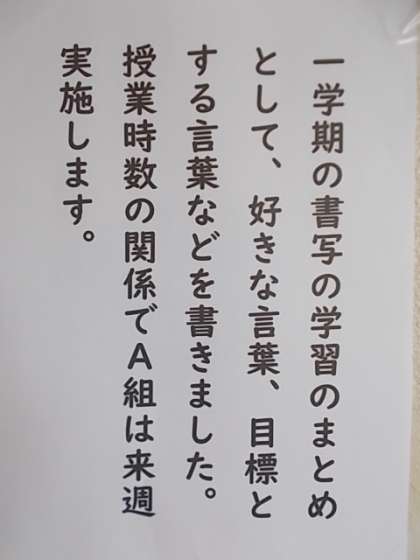 一学期の書写の学習のまとめ
として、好きな言葉、目標と
する言葉などを書きました。
授業時数の関係でＡ組は来週
実施します。